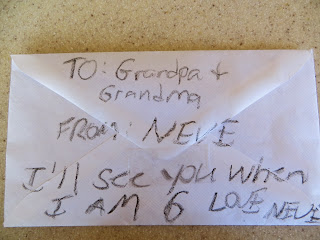 TO: Grandpa +
Grandma
FROM: NEVE
I'll see you when
I AM 6 LOVE NEVE